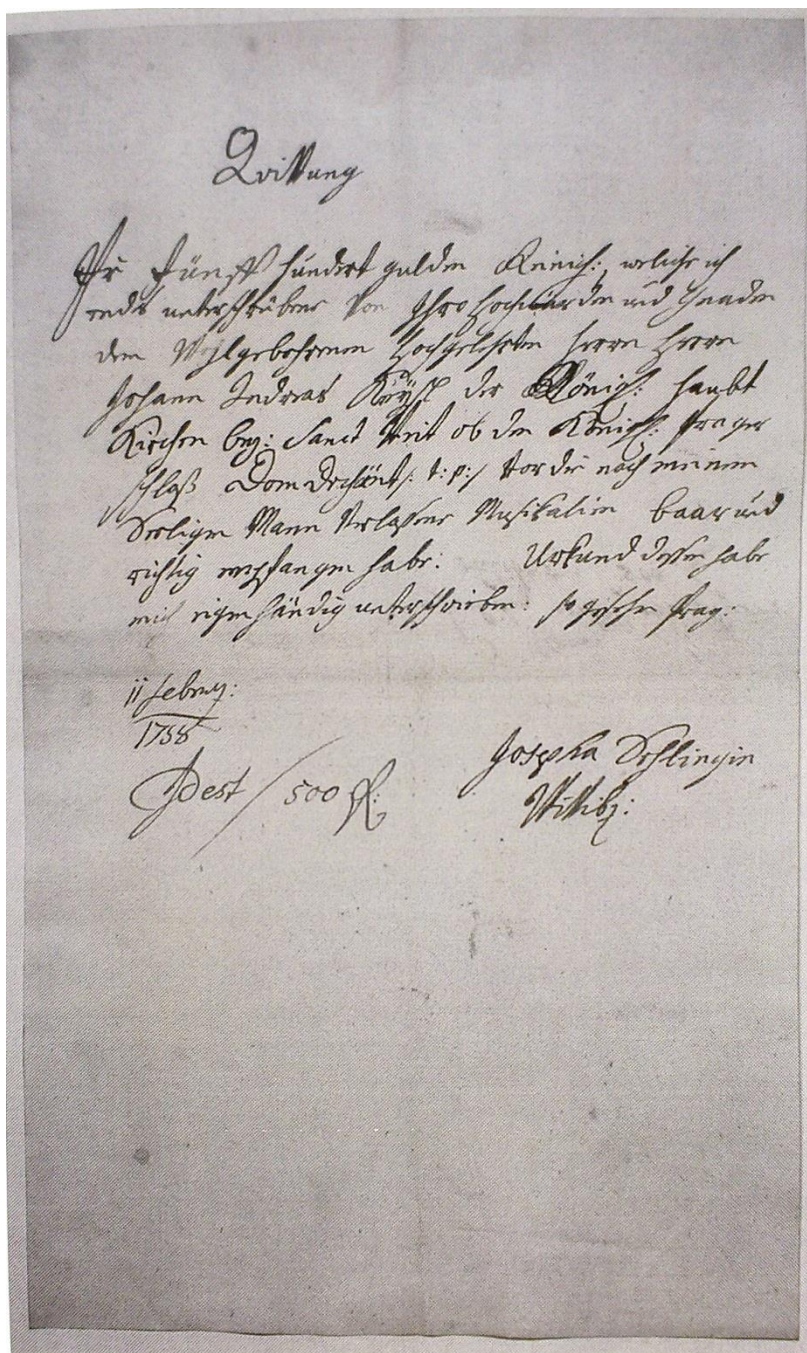 Quittung
Pr Fünff hundert gulden Reinisch: welche ich
ends unterschribene von Ihro Hochwürden und Gnaden
dem Wohlgebohrnen Hochgelehrten Herrn Herrn
Johann Andreas der Königl: Haubt
Kirchen bey: Sanct Veit ob dem Königl: Prager
schloß Dom Dechant /: t: p: / vor die nach meinem
Seeligen Mann Verlassene Musikalien baar und
richtig empfangen habe: Urkund dessen habe
mich eigenhändig unterschrieben: so geschehen Prag:
11 febru:
1758
Josepha Sehlingin
Idest / 500 fl:
Wittib: